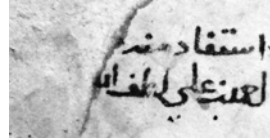 استفاد منه
لعبد علي لطف الله